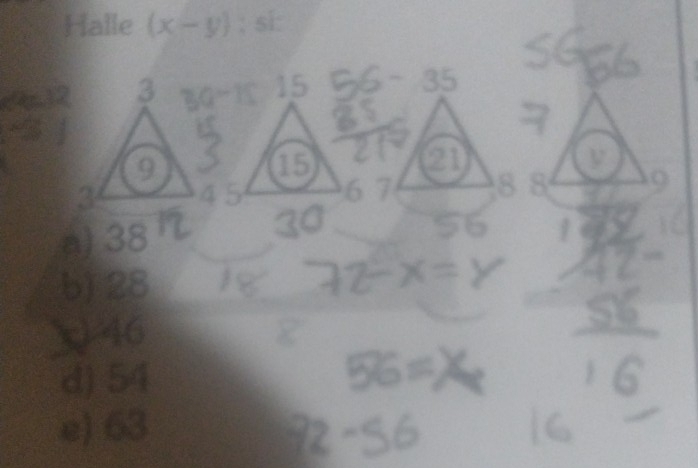 Halle (x-y) : si:
56
3 30-15 15 56- 35 56
15 35 7
3 21
9 15 21 y
3 4 5 6 7 8 8 9
12 30 56 72
a) 38
72-
b) 28 18 72-x=y
56
46 8
d) 54 56=x 16
e) 63 72-56 16